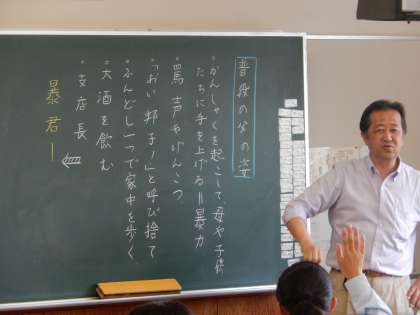 普段の父の姿
・かんしゃくを起こして、母や子供
たちに手を上げる＝暴力
・罵声やげんこつ
・「おい邦子!」と呼び捨て
・ふんどし一つで家中を歩く
・大酒を飲む
・支店長
暴君ー